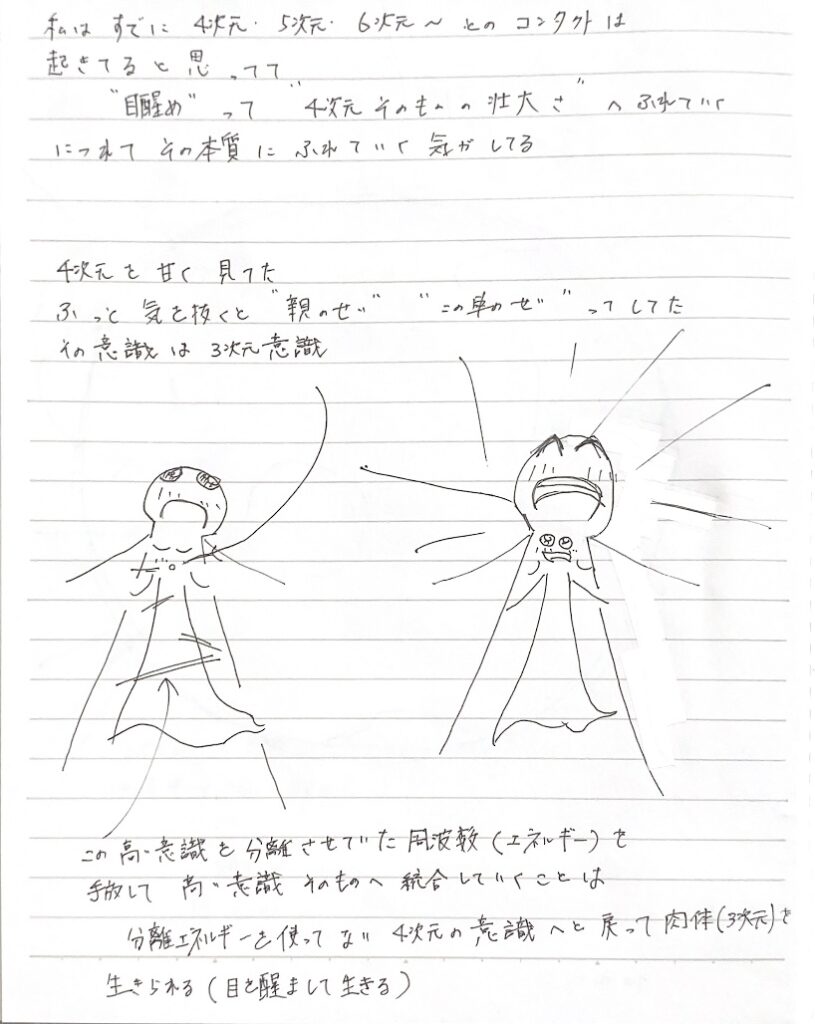 私は すでに 4次元・5次元・6次元〜とのコンタクトは
起きてると思ってて
"目醒め"って "4次元そのものの壮大さ"へふれていく
につれて その本質に ふれていく 気がしてる
4次元を甘く見てた
ふっと 気を抜くと "親のせい" "この星のせい"ってしてた
その意識は 3次元意識
この高い意識を分離させていた周波数(エネルギー)を
手放して 高い意識そのものへ統合していくことは
分離エネルギーを使ってない 4次元の意識へと戻って肉体(3次元)を
生きられる(目を醒まして生きる)